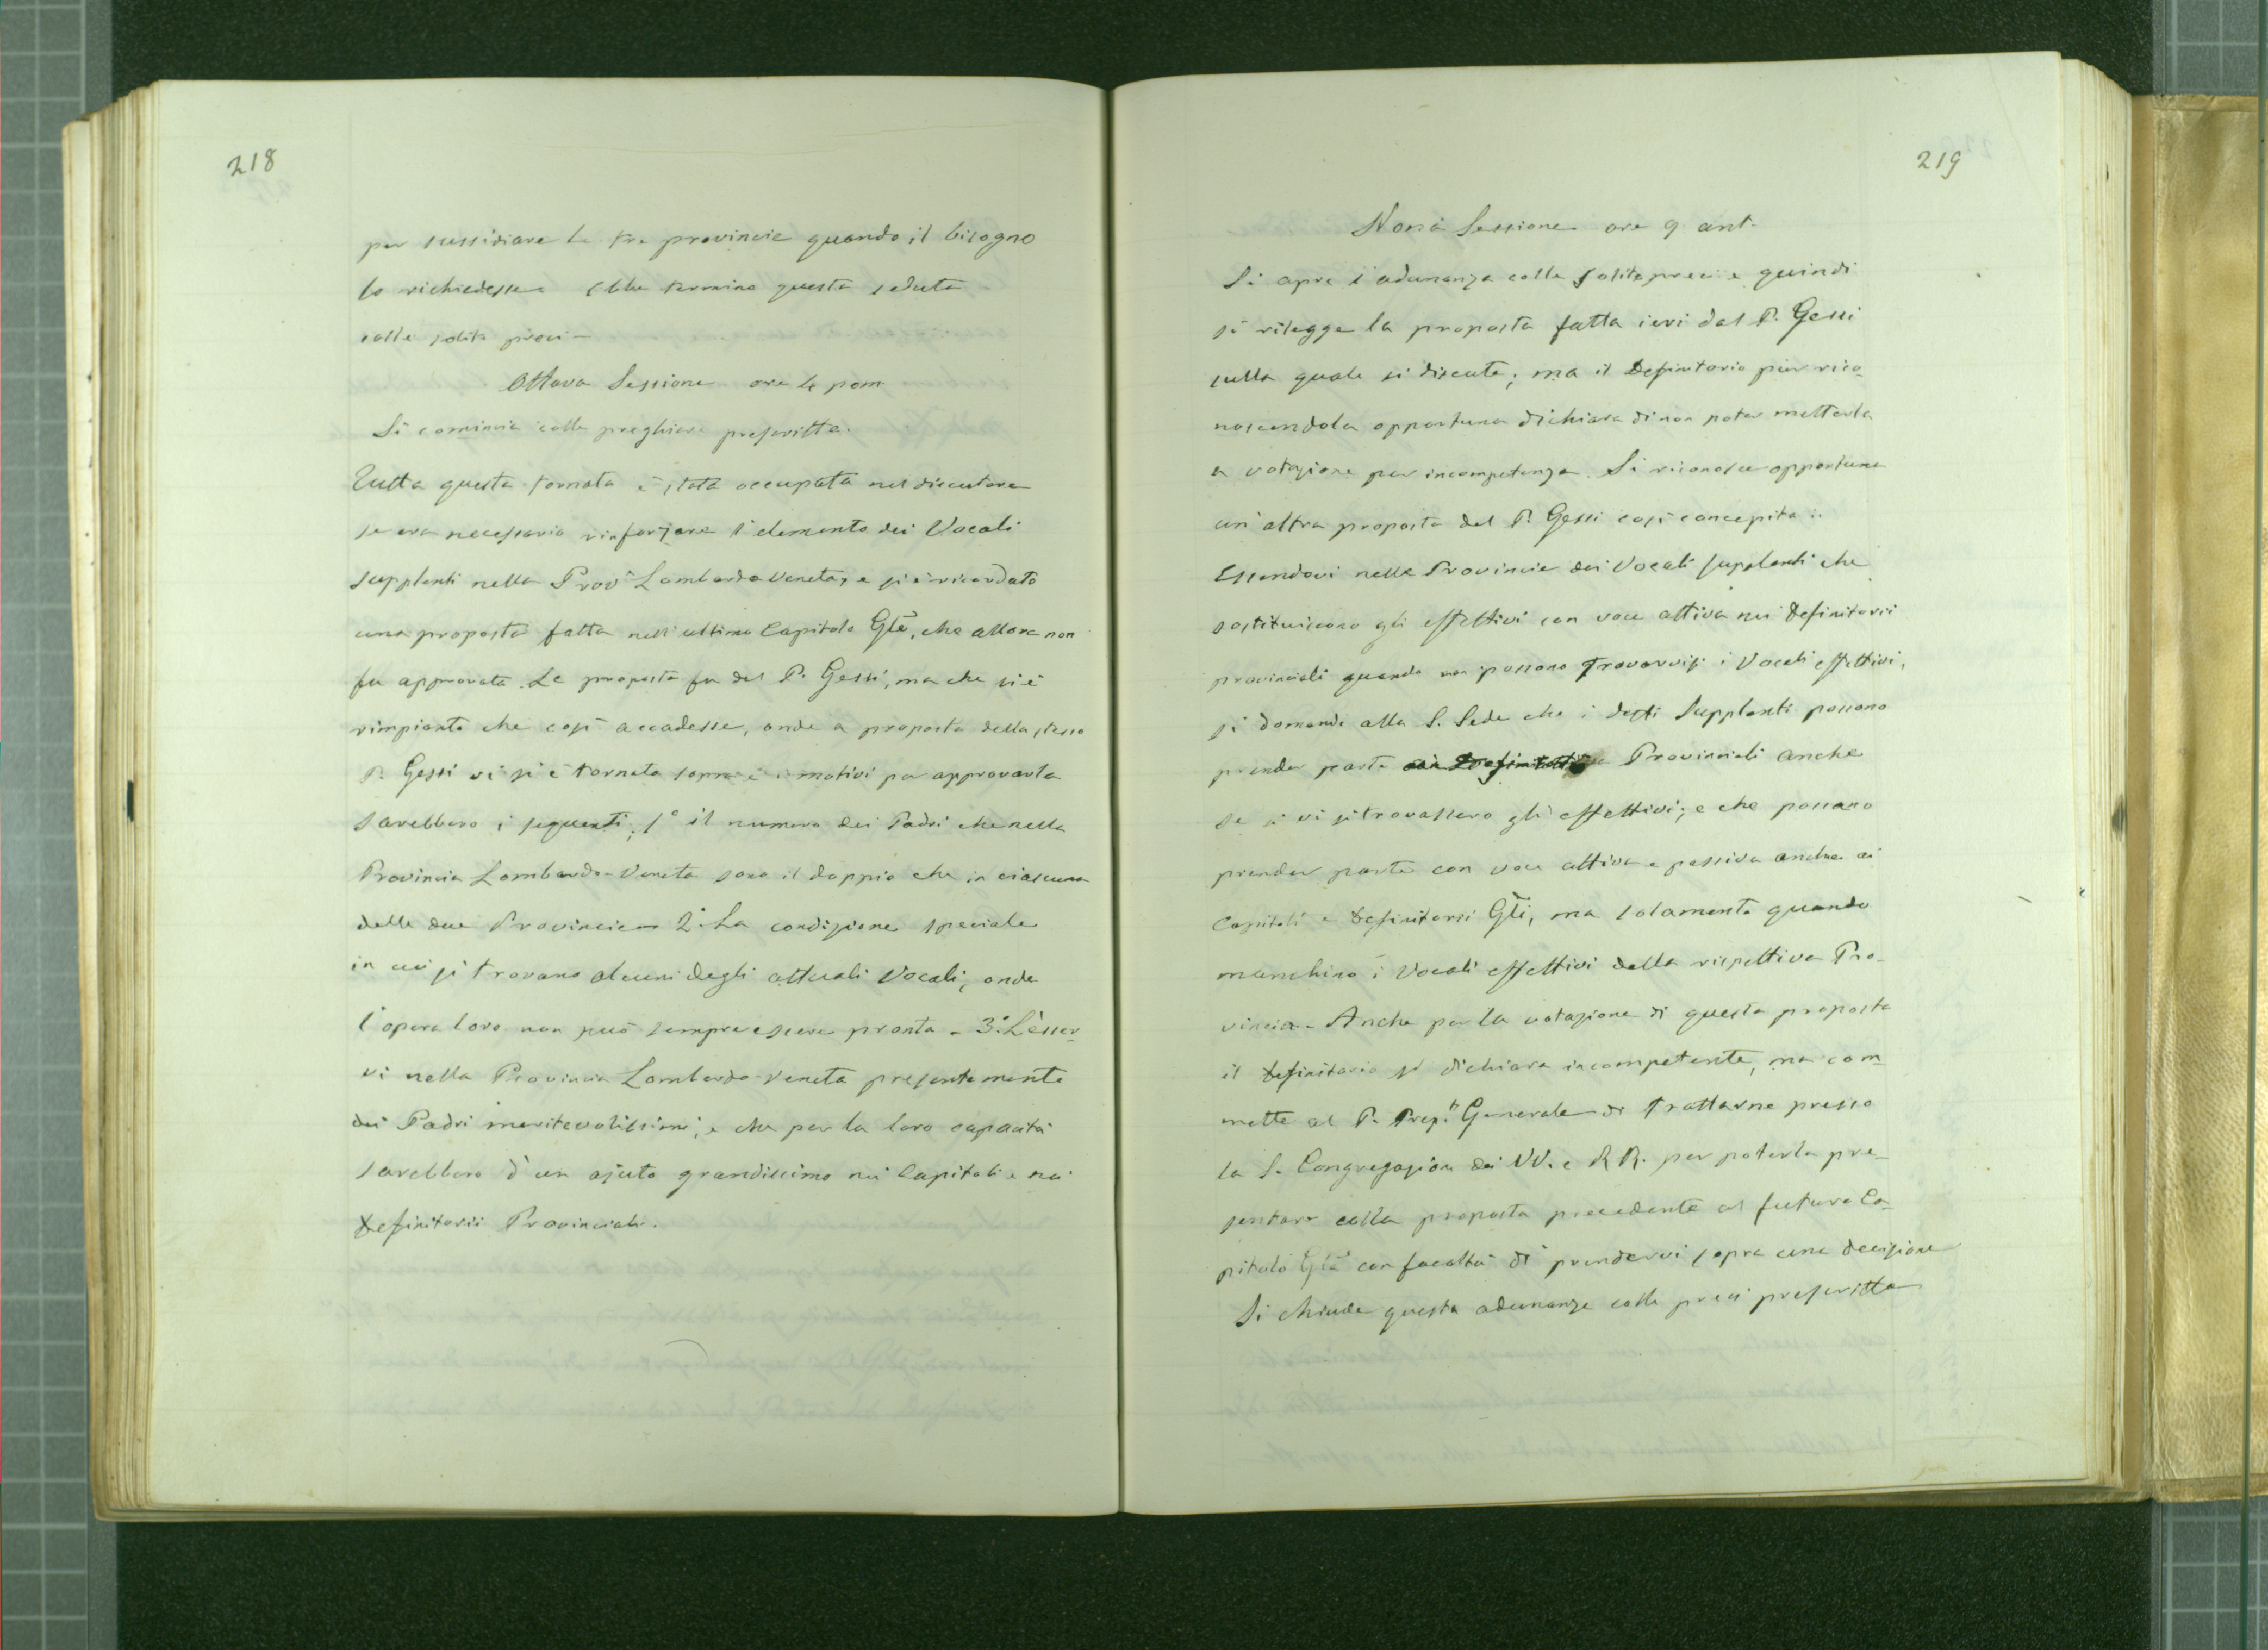 218
per sussidiare le tre provincie quando il bisogno
lo richiedesse ebbe termine questa seduta
colle solite preci -
Ottava Sessione ore 4 pom
Si comincia colle preghiere prescritte.
Tutta questa tornata è stata occupata nel discutere
se era necessario rinforzare l'elemento dei Vocali
supplenti nella Prov.a Lombardo Veneta, e si è ricordato
una proposta fatta nell'ultimo Capitolo Gle, che allora non
fu approvata. La proposta fu del P. Gessi, ma che si è
rimpianto che così accadesse, onde a proposta dello stesso
P. Gessi vi si è tornato sopra e i motivi per approvarla
sarebbero i seguenti; 1° il numero dei Padri che nella
Provincia Lombardo-Veneta sono il doppio che in ciascuna
delle due Provincie - 2° La condizione speciale
in cui si trovano alcuni degli attuali Vocali, onde
l'opera loro non può sempre essere pronta - 3° L'esser-
vi nella Provincia Lombardo-Veneta presentemente
dei Padri meritevolissimi, e che per la loro capacità
sarebbero d'un ajuto grandissimo nei Capitoli e nei
Definitorii Provinciali.
219
Nona Sessione ore 9 ant.
Si apre l'adunanza colle solite preci e quindi
si rilegge la proposta fatta ieri dal P. Gessi
sulla quale si discute; ma il Definitorio pur rico-
noscendola opportuna dichiara di non poter metterla
a votazione per incompetenza. Si riconosce opportuna
un'altra proposta del P. Gessi così concepita:
Essendovi nelle Provincie dei Vocali supplenti che
sostituiscono gli effettivi con voce attiva nei Definitorii
provinciali quando non possono trovarvisi i Vocali effettivi,
si domandi alla S. Sede che i detti Supplenti possano
prender parte ai Definitorii Provinciali anche
se vi si trovassero gli effettivi; e che possano
prender parte con voce attiva e passiva anche ai
Capitoli e Definitorii Gli, ma solamente quando
manchino i Vocali effettivi della rispettiva Pro-
vincia. Anche per la votazione di questa proposta
il Definitorio si dichiara incompetente, ma com-
mette al P. Prep.to Generale di trattarne presso
la S. Congregazione dei VV. e RR. per poterla pre-
sentare colla proposta precedente al futuro Ca-
pitolo Gle con facoltà di prendervi sopra una decisione
Si chiude questa adunanza colle preci prescritte